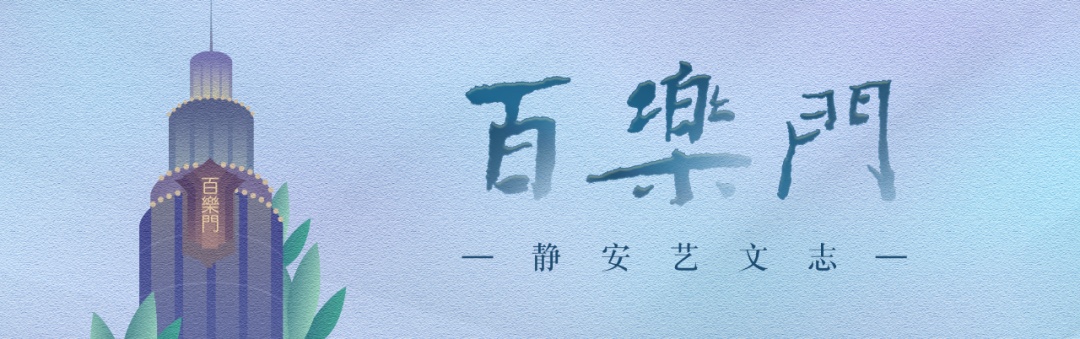 百樂門
百樂門
— 静安艺文志 —